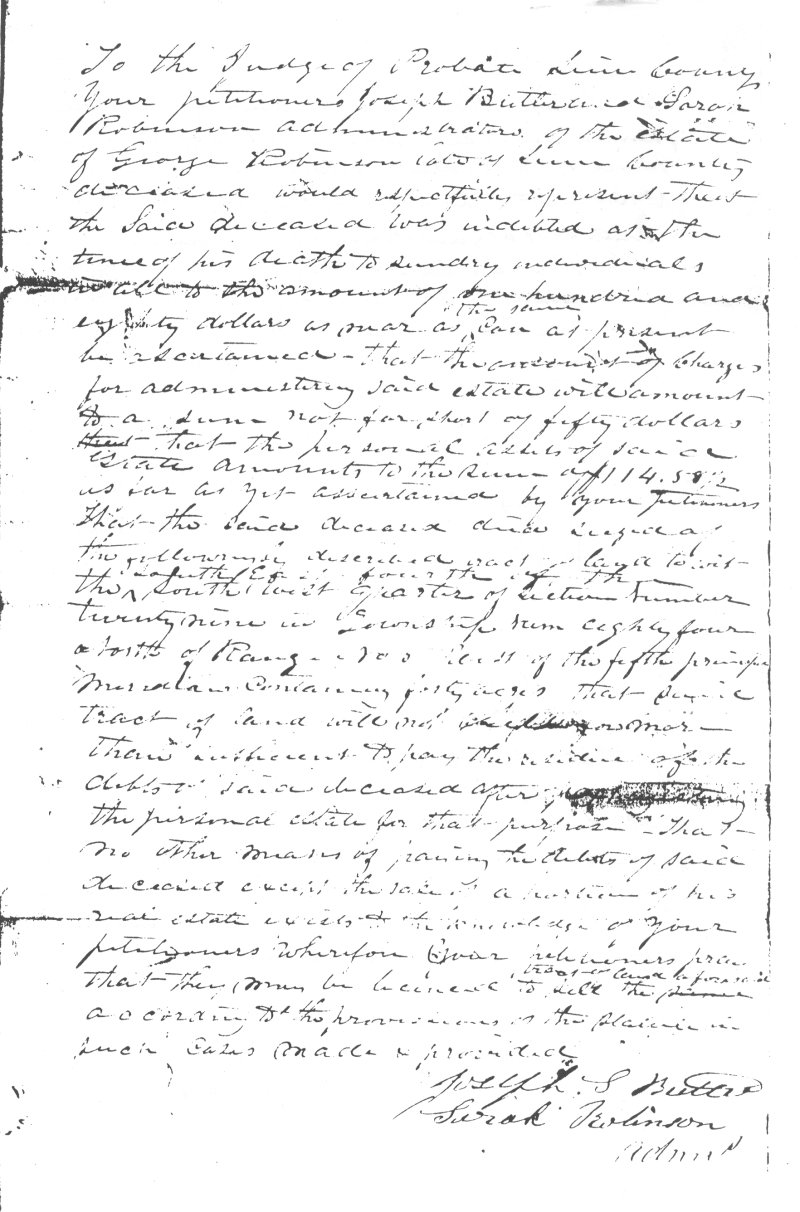 To the Judge of Probate Linn County
Your petitioners Joseph Butler and Sarah
Robinson administrators of the Estate
of George Robinson late of Linn County
deceased would respectfully represent that
the said deceased was indebted at the
time of his death to sundry individuals
in all to the amount of one hundred and
eighty dollars as near as the same can at present
be ascertained – that the amount of charges
for administering said estate will amount
to a sum not far short of fifty dollars
that the personal assets of said
Estate amounts to the sum of 114.58½
as far as yet ascertained by your petitioners
That the said deceased died seized of
the following described tract of land to wit
the South East fourth of the South West Quarter of Section Number
twenty nine in Township Num eighty four
North of Range West of the fifth princip
Meridian Containing forty acres that said
tract of land will not more
than sufficient to pay the residue of the
debts of said deceased after
the personal estate for that purpose – That
no other means of paying the debts of said
deceased except the sale of a portion of his
real estate exists to the knowledge of your
petitioners Wherefore your petitioners pray
that they may be licensed to sell the tract of land aforesaid
according to the provisions of the statute in
such Cases made & provided
Joseph S Butler
Sarah Robinson
Admrs